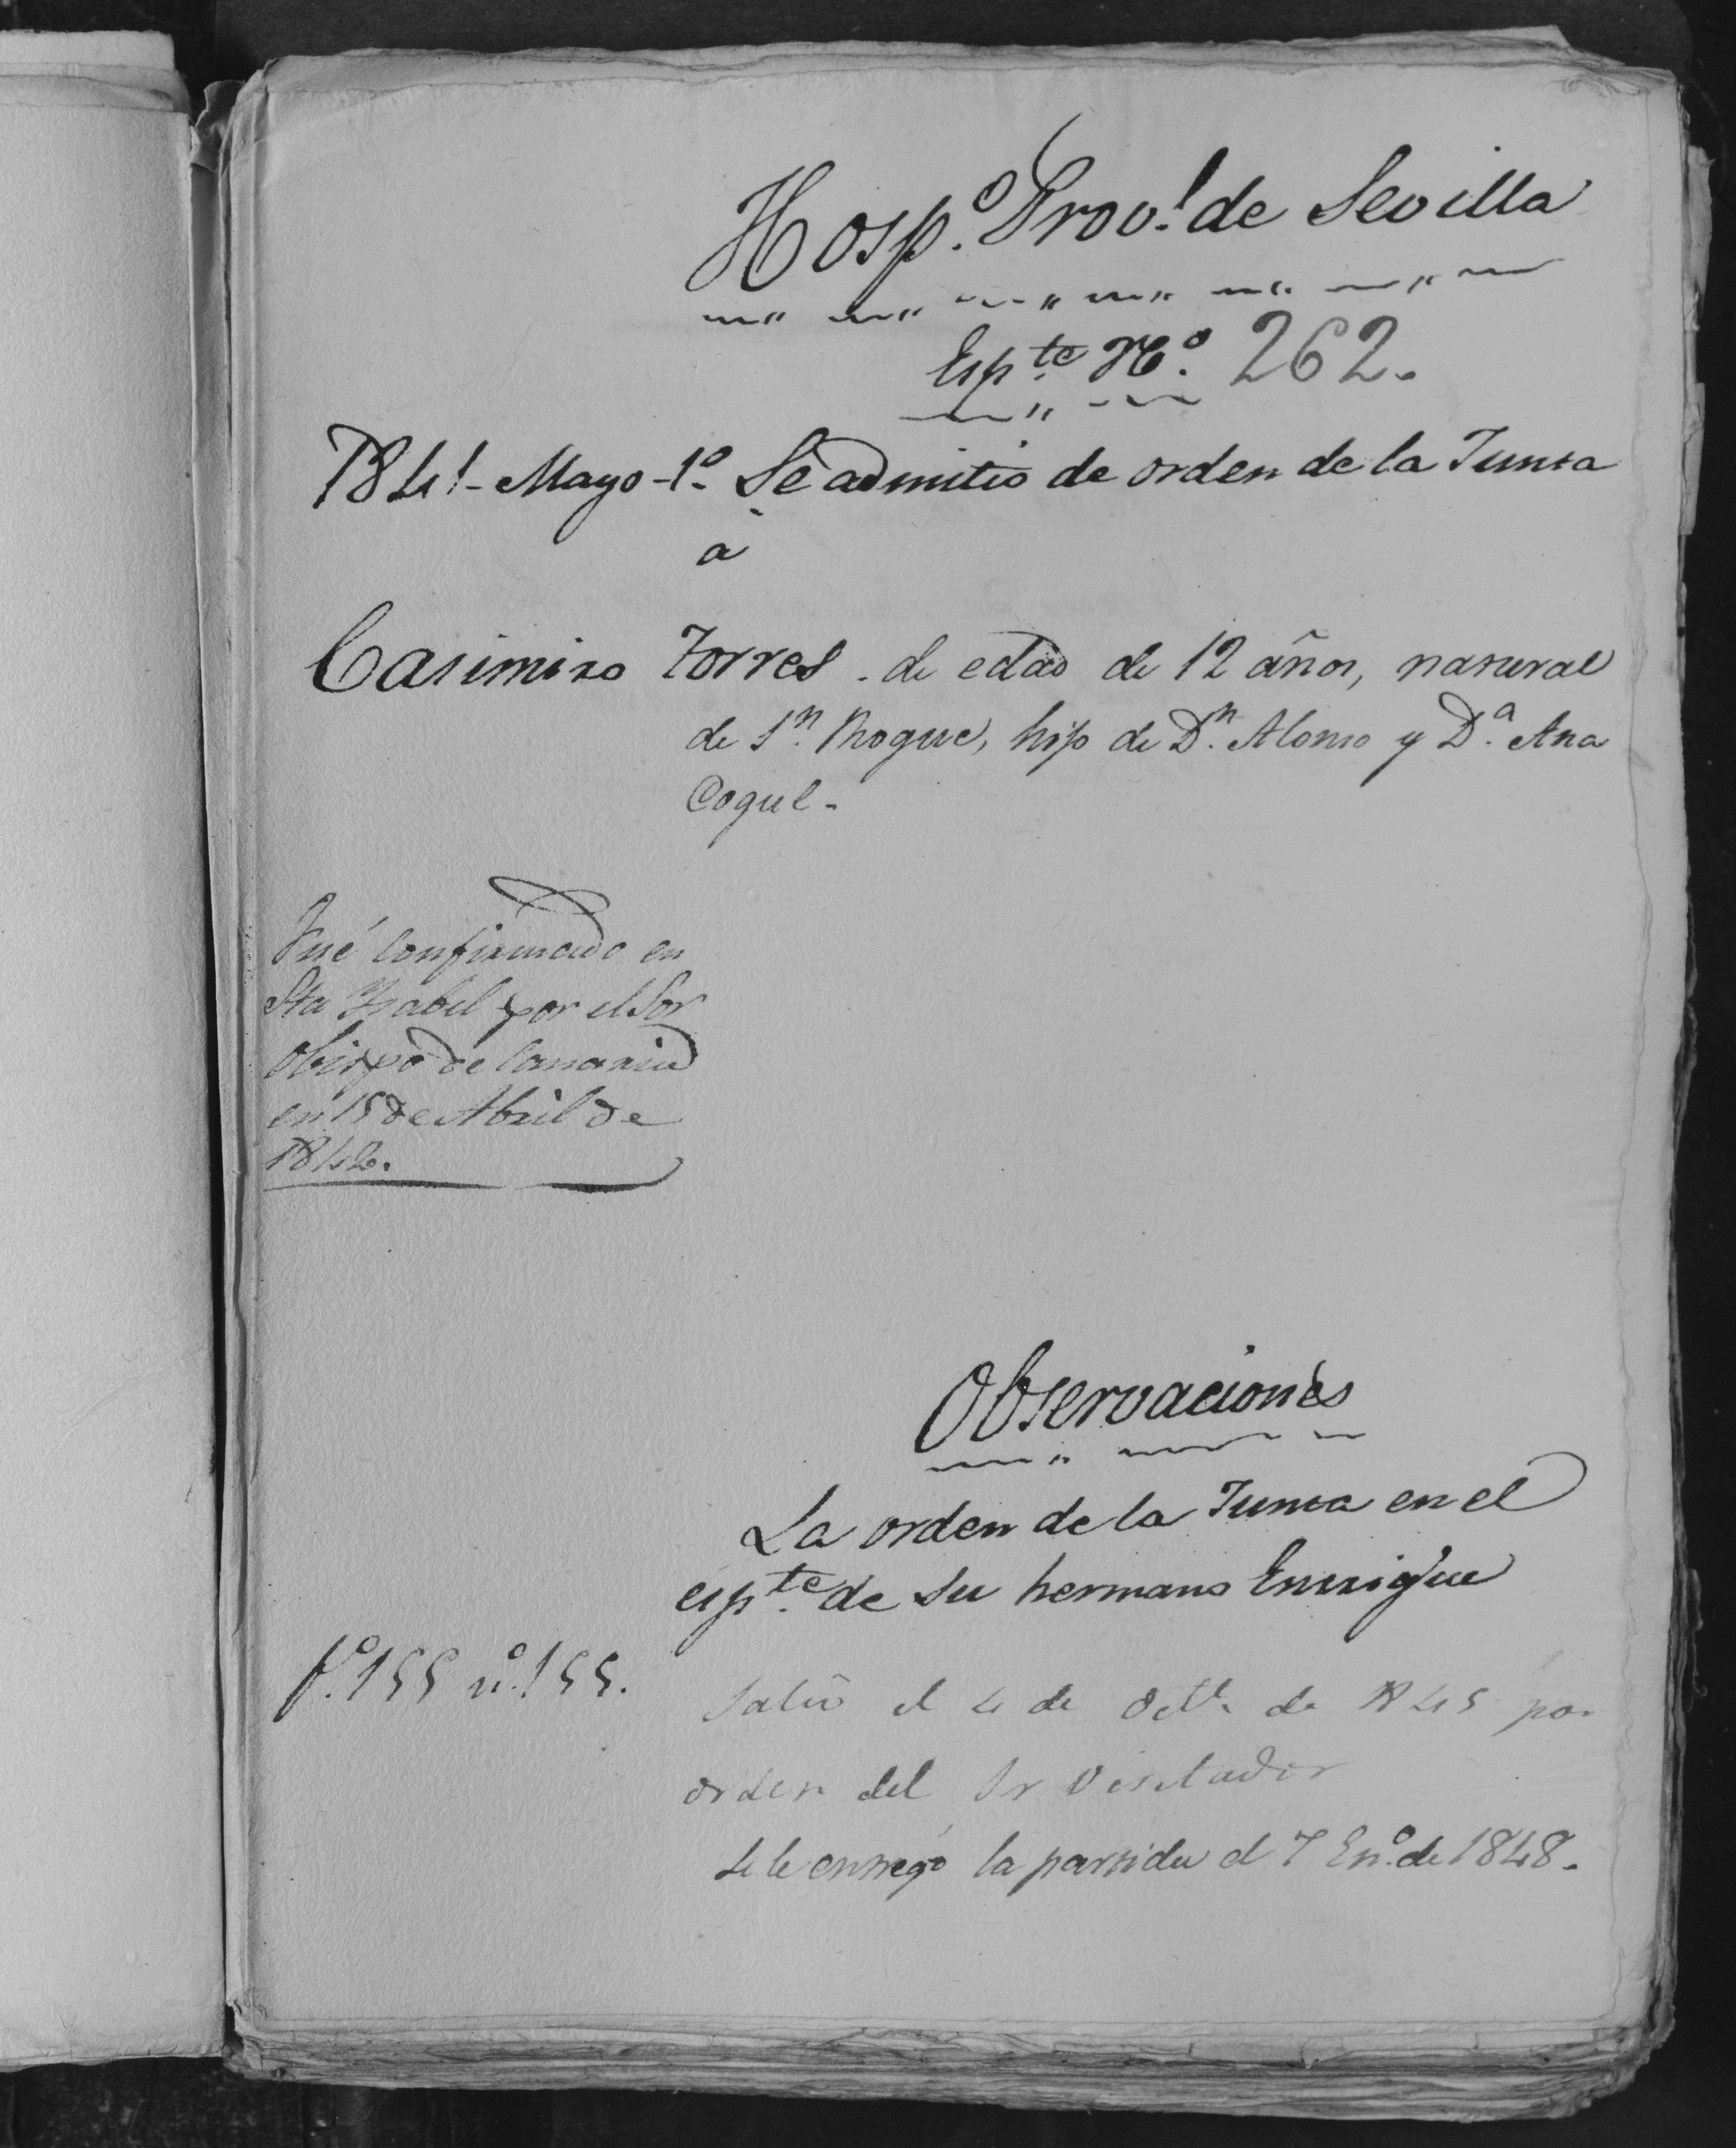 Hosp.º Prov.l de Sevilla
Esp.te N.º 262.
1841 - Mayo - 1º Se admitió de orden de la Junta
a
Casimiro Torres . de edad de 12 años, natural
de S.n Roque, hijo de D.n Alonso y D.a Ana
Coquel -
Fué confirmado en
Sta Ysabel por el Sor
Obispo de Canarias
en 15 de Abril de
1842.
Observaciones
La orden de la Junta en el
esp.te de su hermano Enrrique
f.º 155 n.º 155.
Salió el 4 de de 1845 por
orden del Sr Visitador
se le entregó la partida el 7 En.º de 1848.